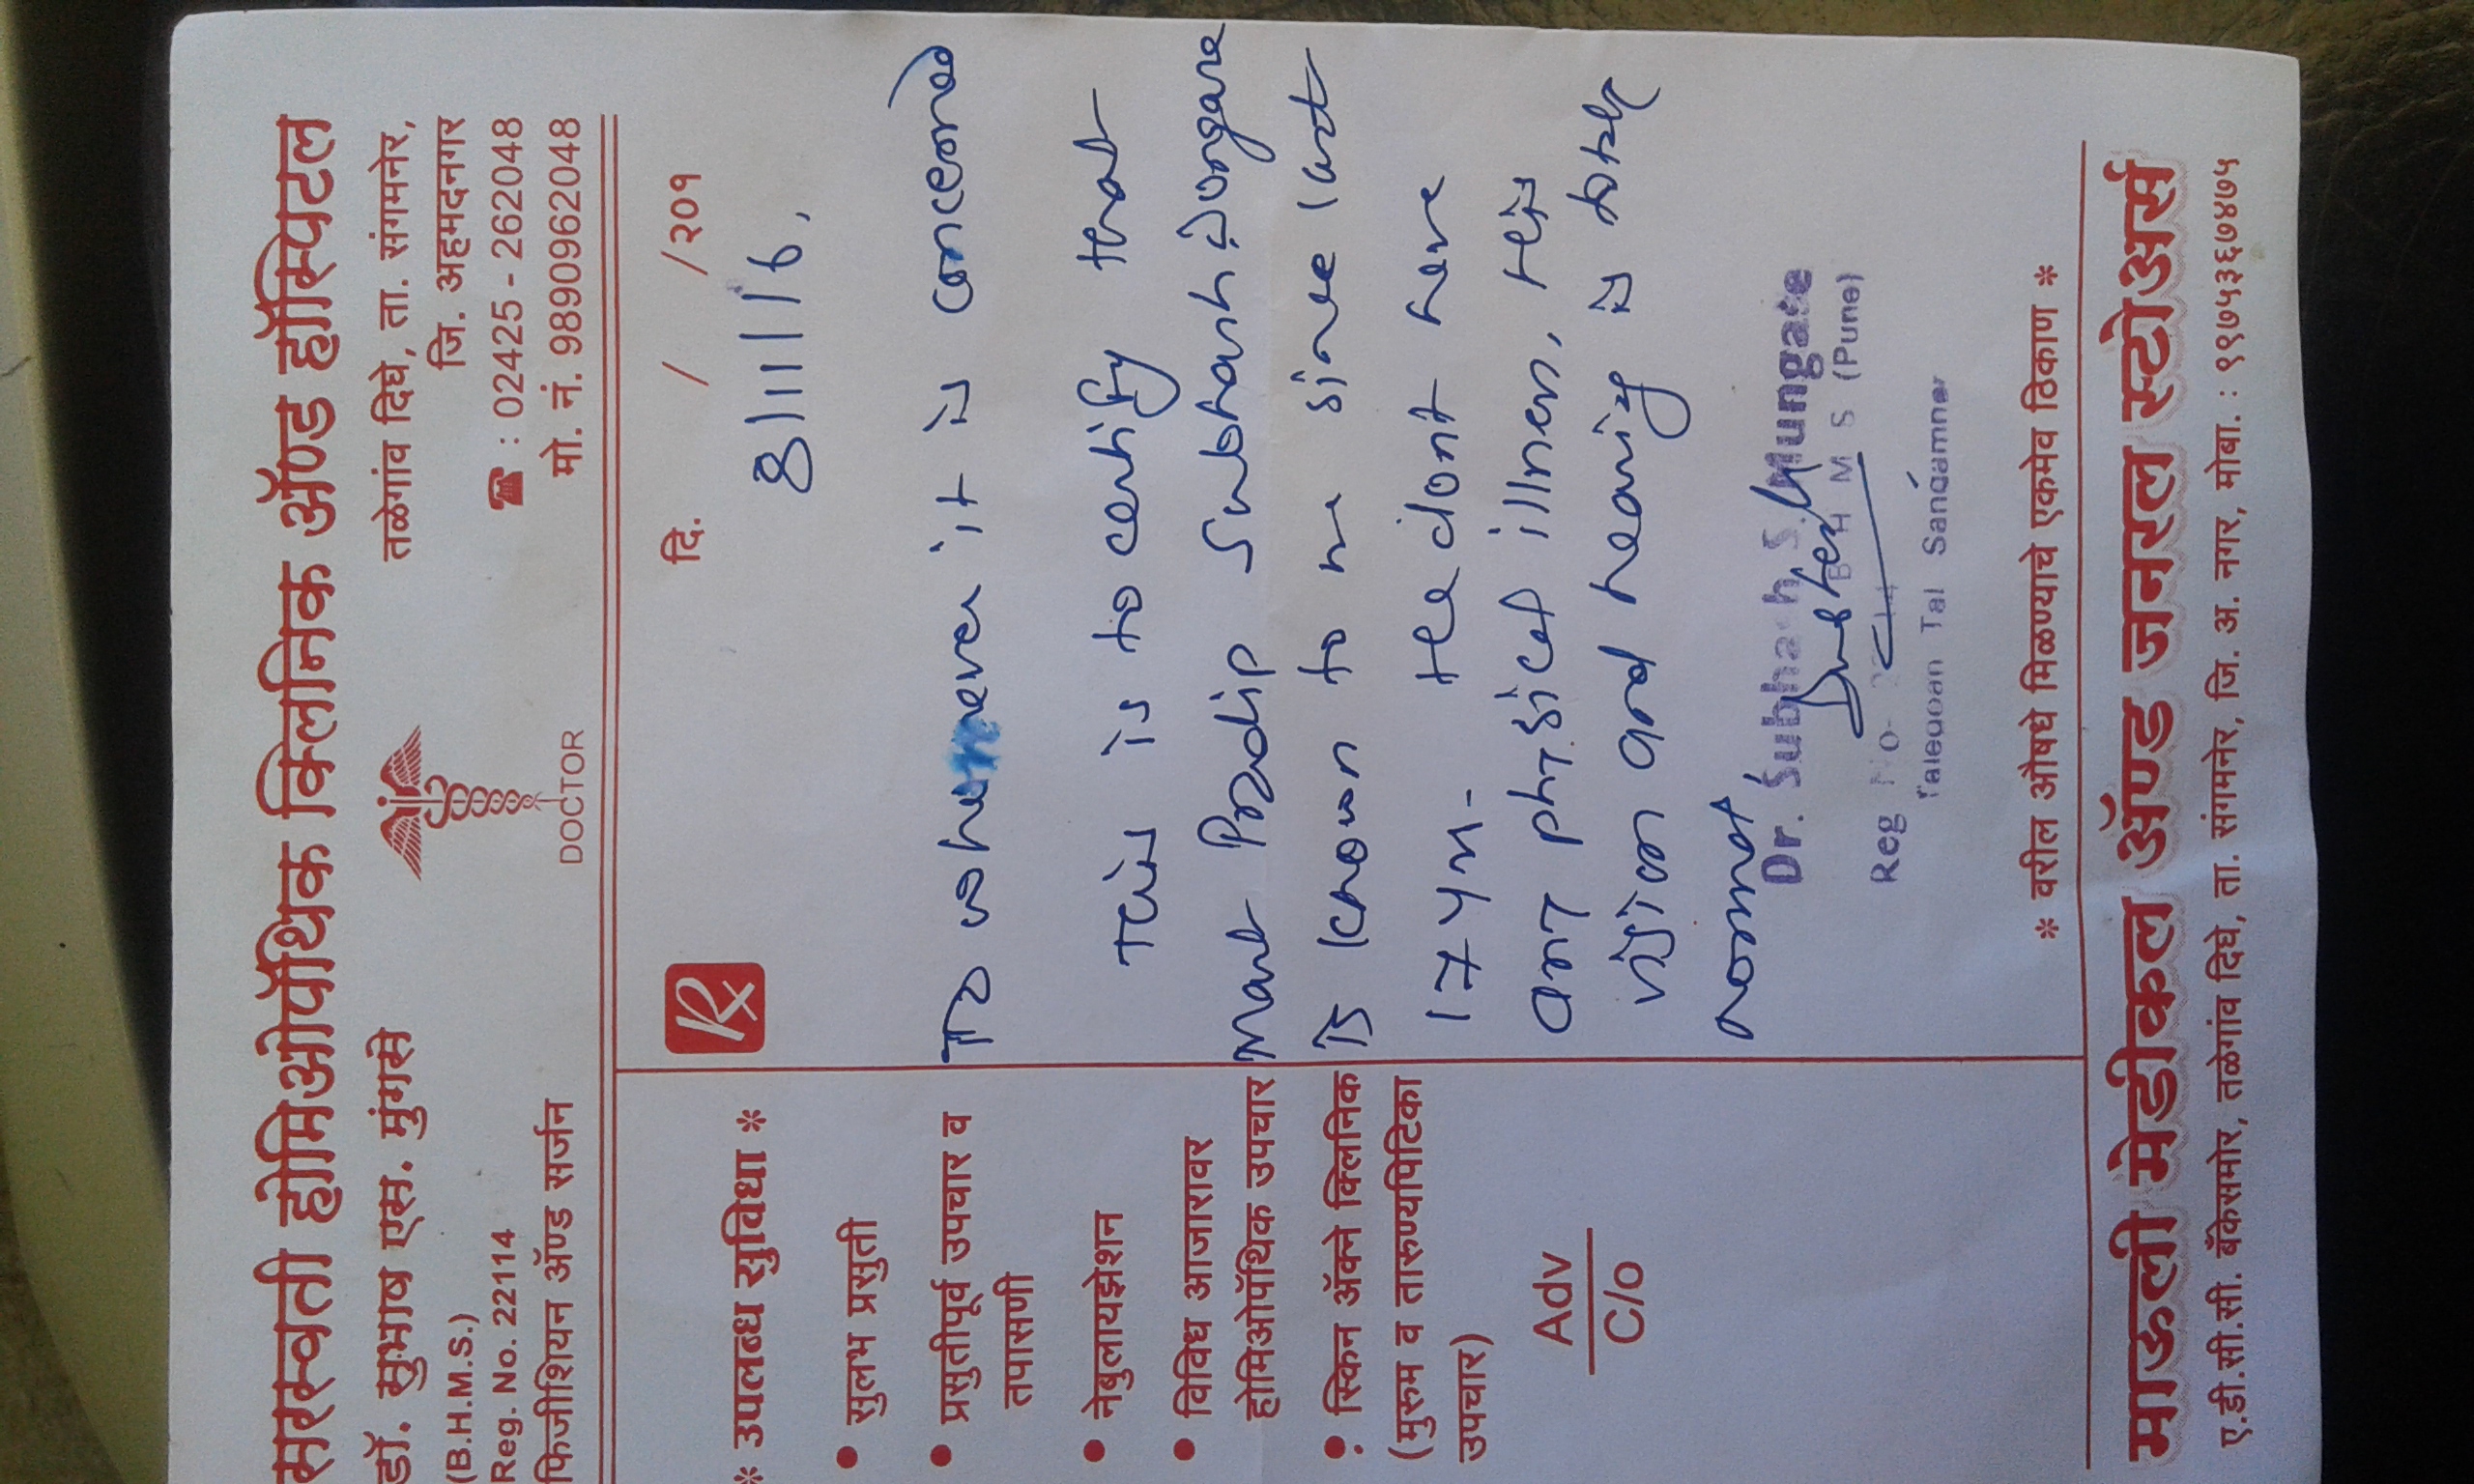 सरस्वती होमिओपॅथिक क्लिनिक ॲण्ड हॉस्पिटल
डॉ. सुभाष एस. मुंगसे
(B.H.M.S.)
Reg. No. 22114
फिजीशियन ॲण्ड सर्जन
DOCTOR
तळेगांव दिघे, ता. संगमनेर,
जि. अहमदनगर
☎ : 02425 - 262048
मो. नं. 98890962048
* उपलब्ध सुविधा *
• सुलभ प्रसुती
• प्रसुतीपूर्व उपचार व
तपासणी
• नेबुलायझेशन
• विविध आजारावर
होमिओपॅथिक उपचार
• स्किन ॲक्ने क्लिनिक
(मुरुम व तारुण्यपिटिका
उपचार)
Adv
C/o
Rx
दि. / /२०१
8/11/16,
To whomever it is concerned
This is to certify that
Mast Pradip Subhash Mungase
is known to me since last
17 yrs. He dont have
any physical illness, His
vision and hearing is both
normal
Dr. Subhash S. Mungase
B H M S (Pune)
Reg No-
Talegaon Tal Sangamner
* वरील औषधे मिळण्याचे एकमेव ठिकाण *
माऊली मेडीकल ॲण्ड जनरल स्टोअर्स
ए.डी.सी.सी. बँकेसमोर, तळेगांव दिघे, ता. संगमनेर, जि. अ. नगर, मोबा. : ९९७५३६७४७५